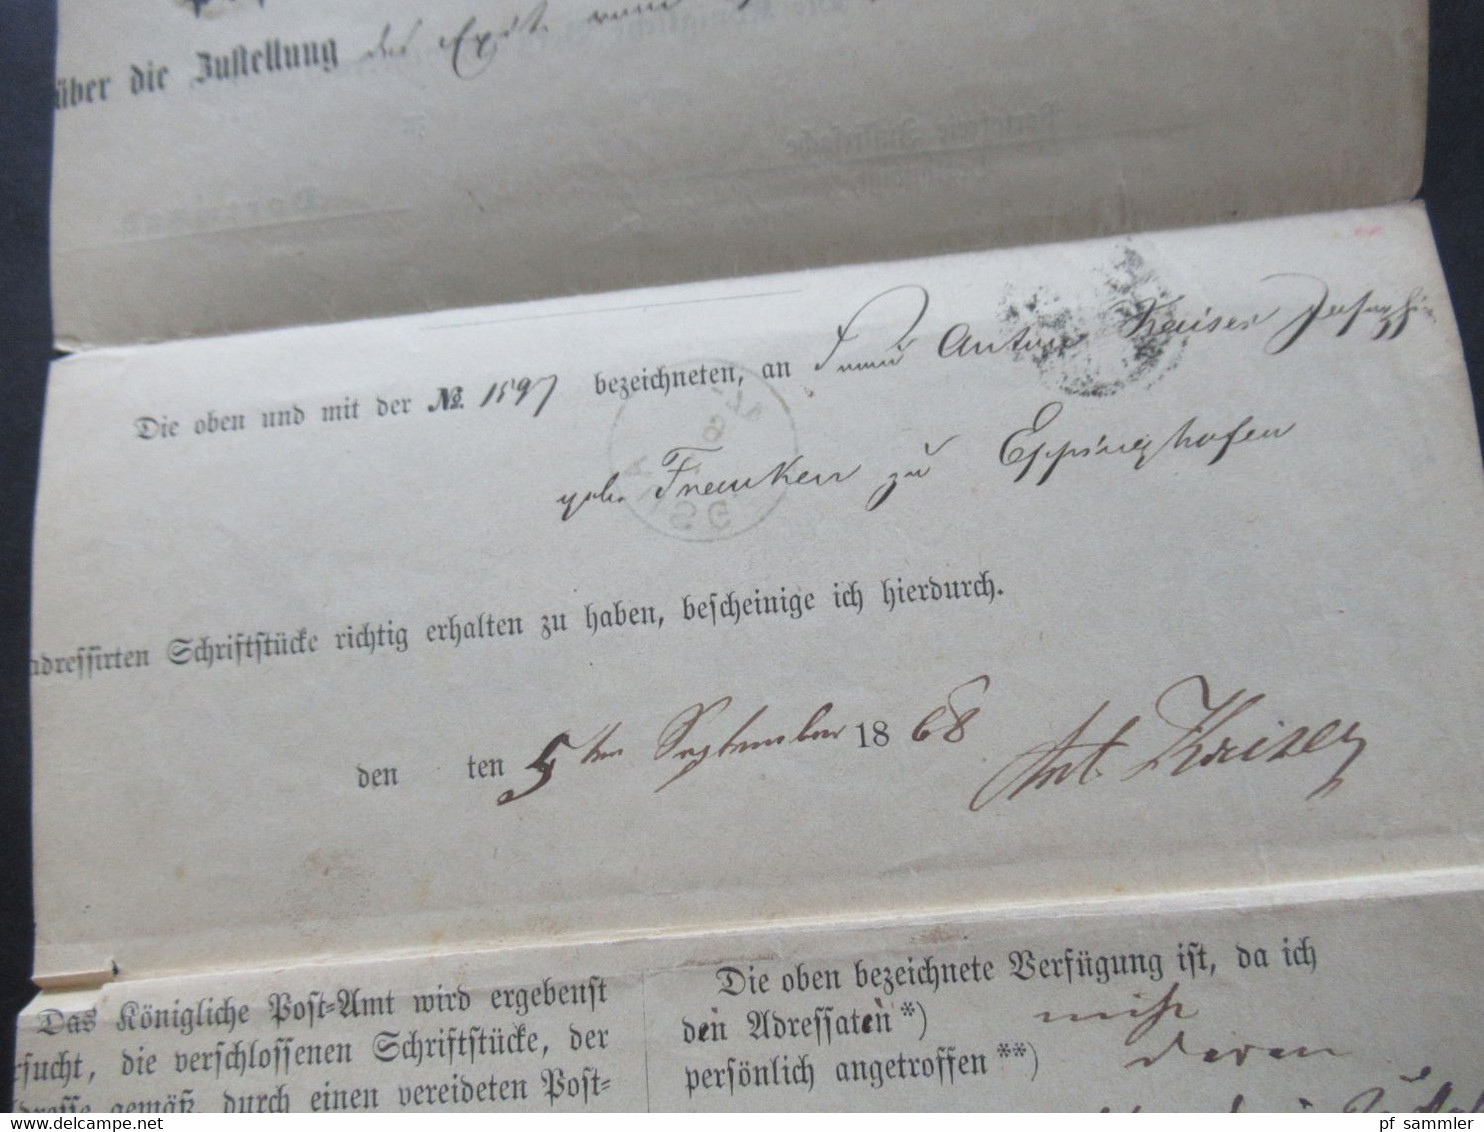 über die Zustellung des
Die oben und mit der No. 1597 bezeichneten, an Frau Anton Kaiser Josephine
geb. Franken zu Eppinghofen
adressirten Schriftstücke richtig erhalten zu haben, bescheinige ich hierdurch.
den ten 5ten September 1868 Ant. Kaiser
Das Königliche Post-Amt wird ergebenst
rsucht, die verschlossenen Schriftstücke, der
dresse gemäß, durch einen vereideten Post-
Die oben bezeichnete Verfügung ist, da ich
den Adressaten *) nicht
persönlich angetroffen **) deren
pf sammler